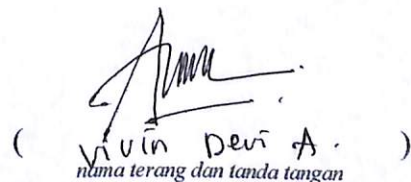 ( Vivin Devi A. )
nama terang dan tanda tangan